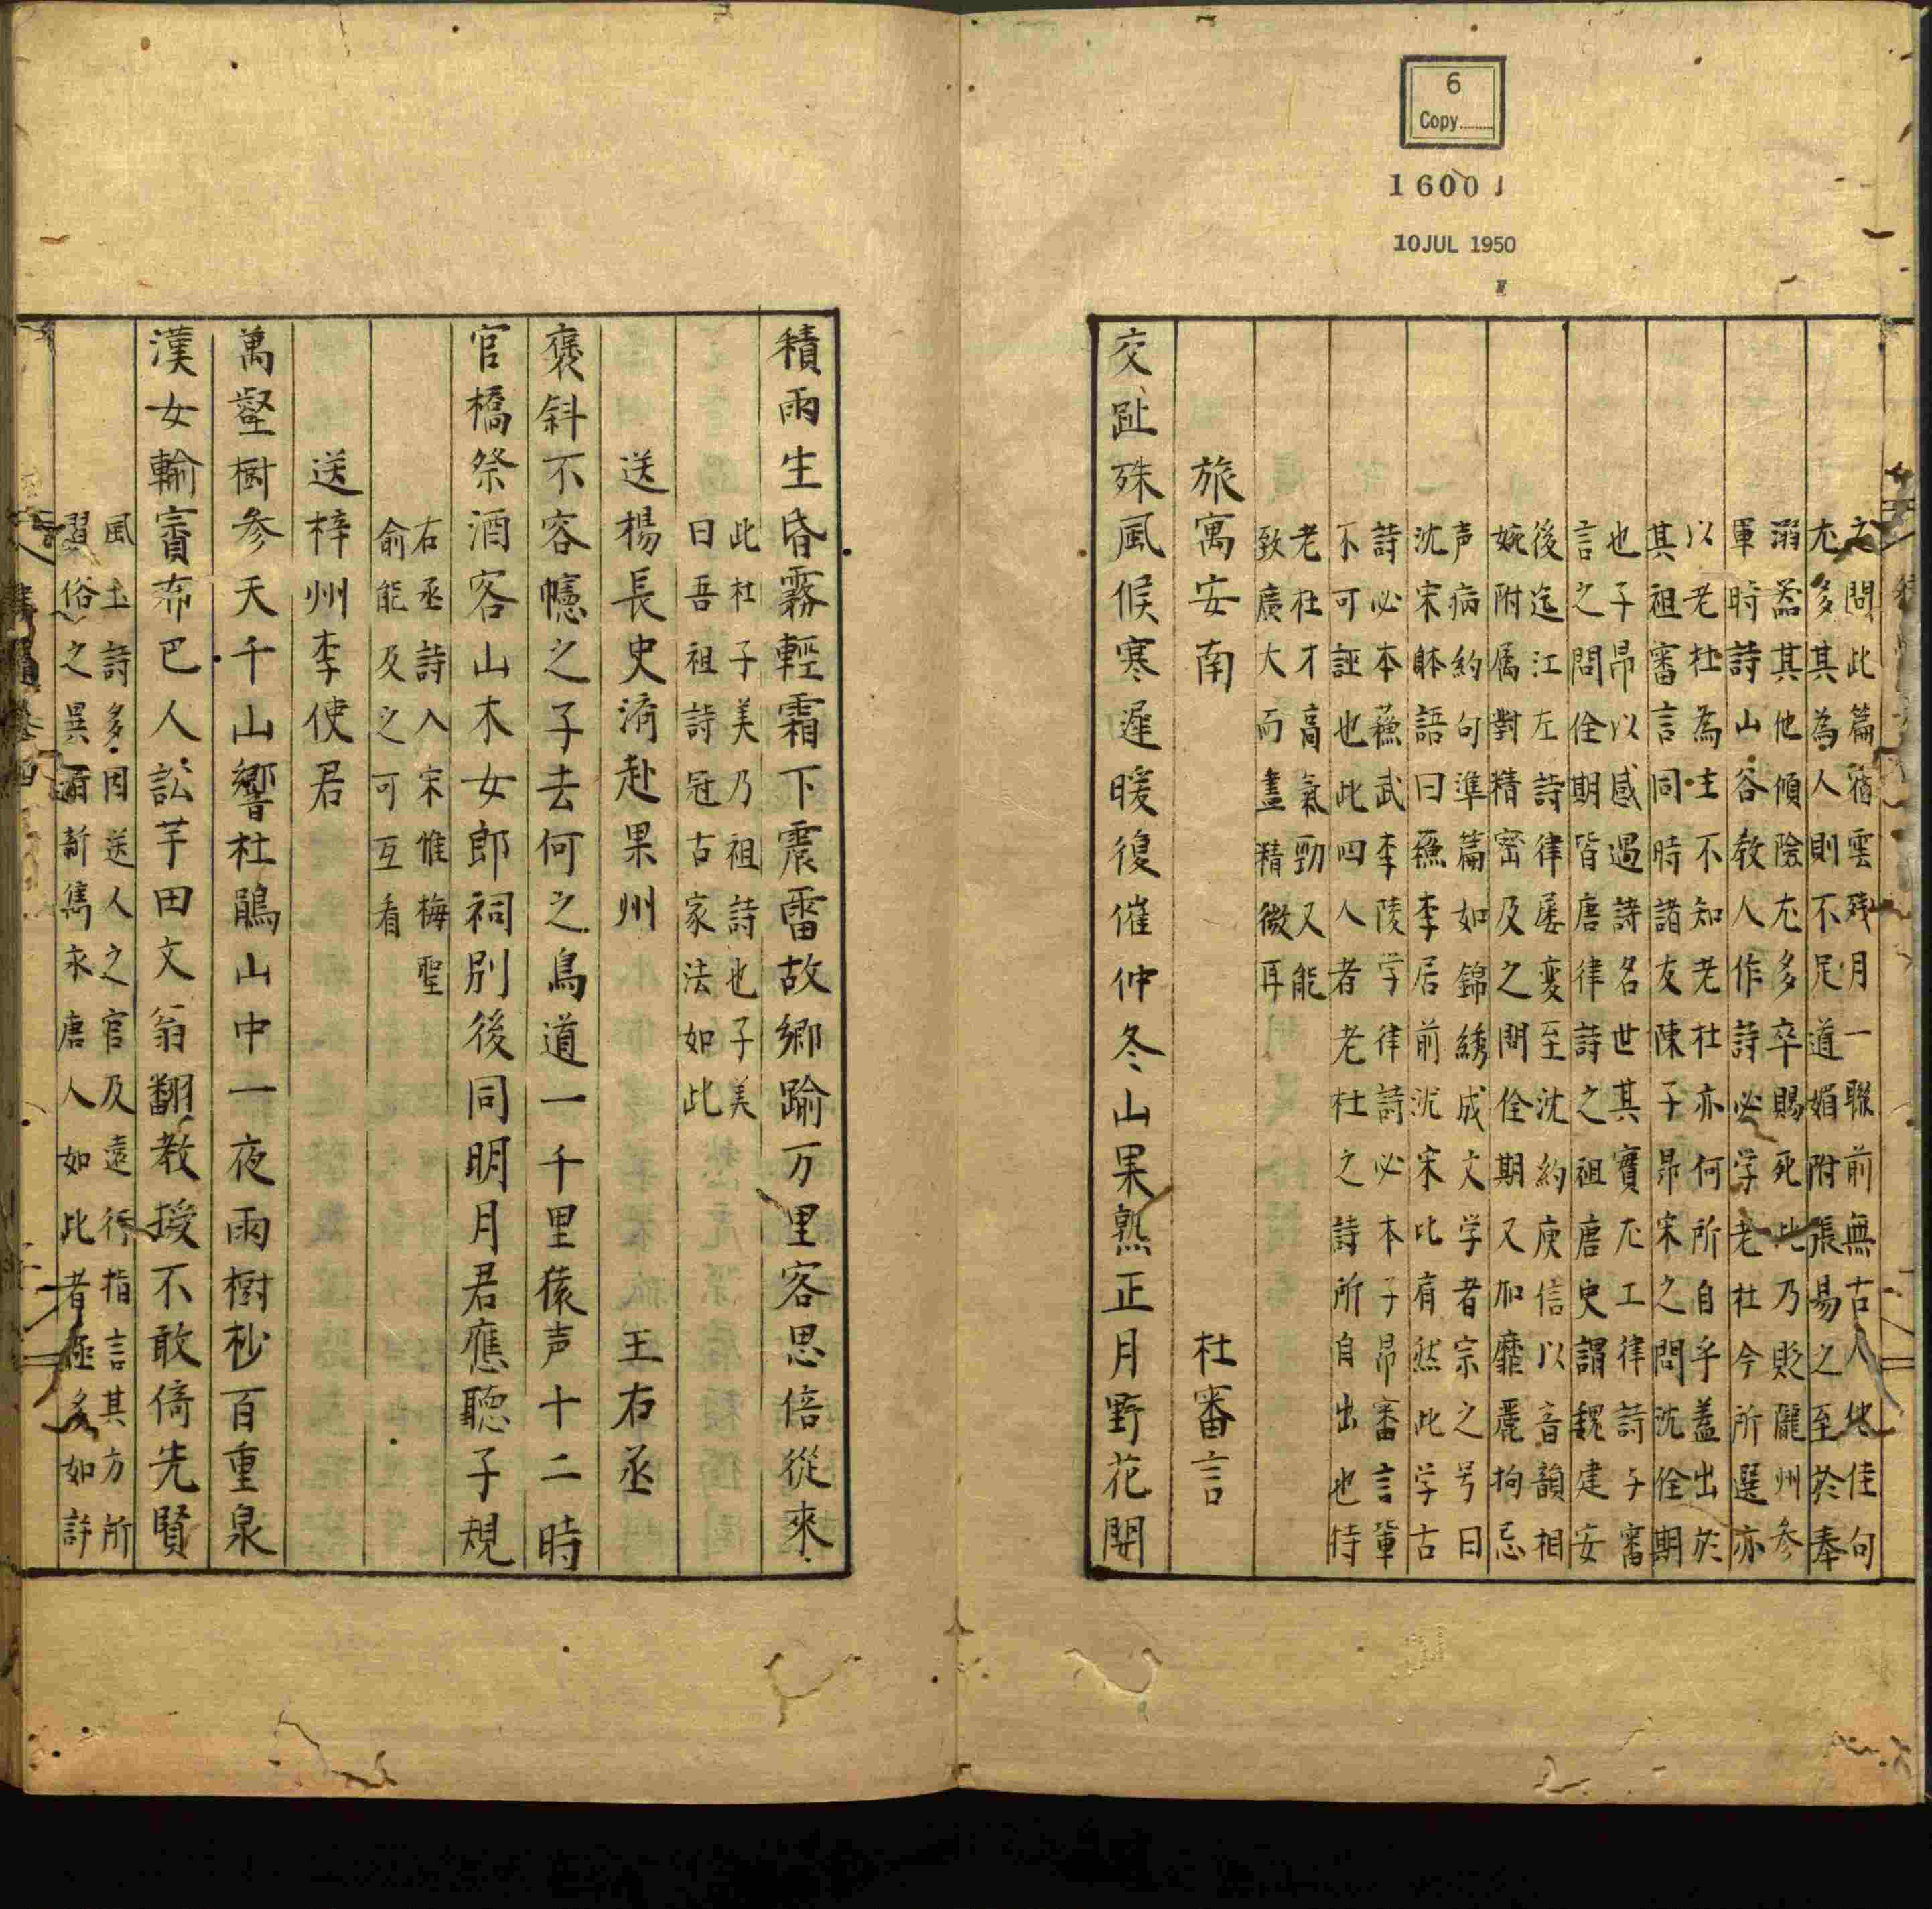 6
Copy
1600 J
10 JUL 1950
之問此篇宿雲残月一聯前無古人他佳句
尤多其為人則不足道媚附張易之至於奉
溺器其他傾險尤多卒賜死此乃貶隴州参
軍時詩山谷教人作詩必学老杜今所選亦
以老杜為主不知老杜亦何所自乎盖出於
其祖審言同時諸友陳子昂宋之問沈佺期
也子昂以感遇詩名世其實尤工律詩与審
言之問佺期皆唐律詩之祖唐史謂魏建安
後迄江左詩律屡変至沈約庾信以音韻相
婉附属對精宻及之問佺期又加靡麗拘忌
声病約句準篇如錦綉成文学者宗之号曰
沈宋躰語曰蘓李居前沈宋比有然此学古
詩必本蘓武李陵学律詩必本子昂審言軰
不可誣也此四人者老杜之詩所自出也特
老杜才高氣勁又能
致廣大而盡精微耳
旅寓安南 杜審言
交趾殊風候寒遲暖復催仲冬山果熟正月野花開
積雨生昏霧輕霜下震雷故郷踰万里客思倍從来
此杜子美乃祖詩也子美
曰吾祖詩冠古家法如此
送楊長史濟赴果州 王右丞
褒斜不容幰之子去何之鳥道一千里猿声十二時
官橋祭酒客山木女郎祠別後同明月君應聽子規
右丞詩入宋惟梅聖
俞能及之可互看
送梓州李使君
萬壑樹参天千山響杜鵑山中一夜雨樹杪百重泉
漢女輸賨布巴人訟芋田文翁翻教授不敢倚先賢
風土詩多因送人之官及遠行指言其方所
習俗之異爾新雋求唐人如此者極多如許